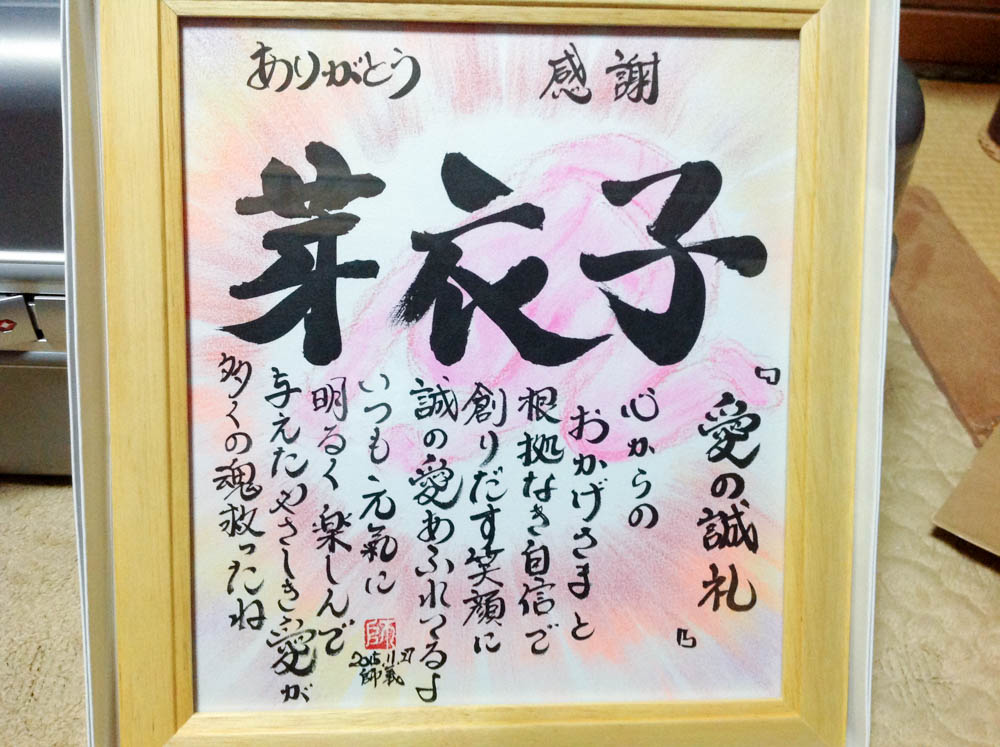 ありがとう
感謝
芽衣子
『愛の誠礼』
心からの
おかげさまと
根拠なき自信で
創りだす笑顔に
誠の愛あふれってるよ
いつも元氣に
明るく楽しんで
与えたやさしき愛が
多くの魂救ったね
師
2015.11.27